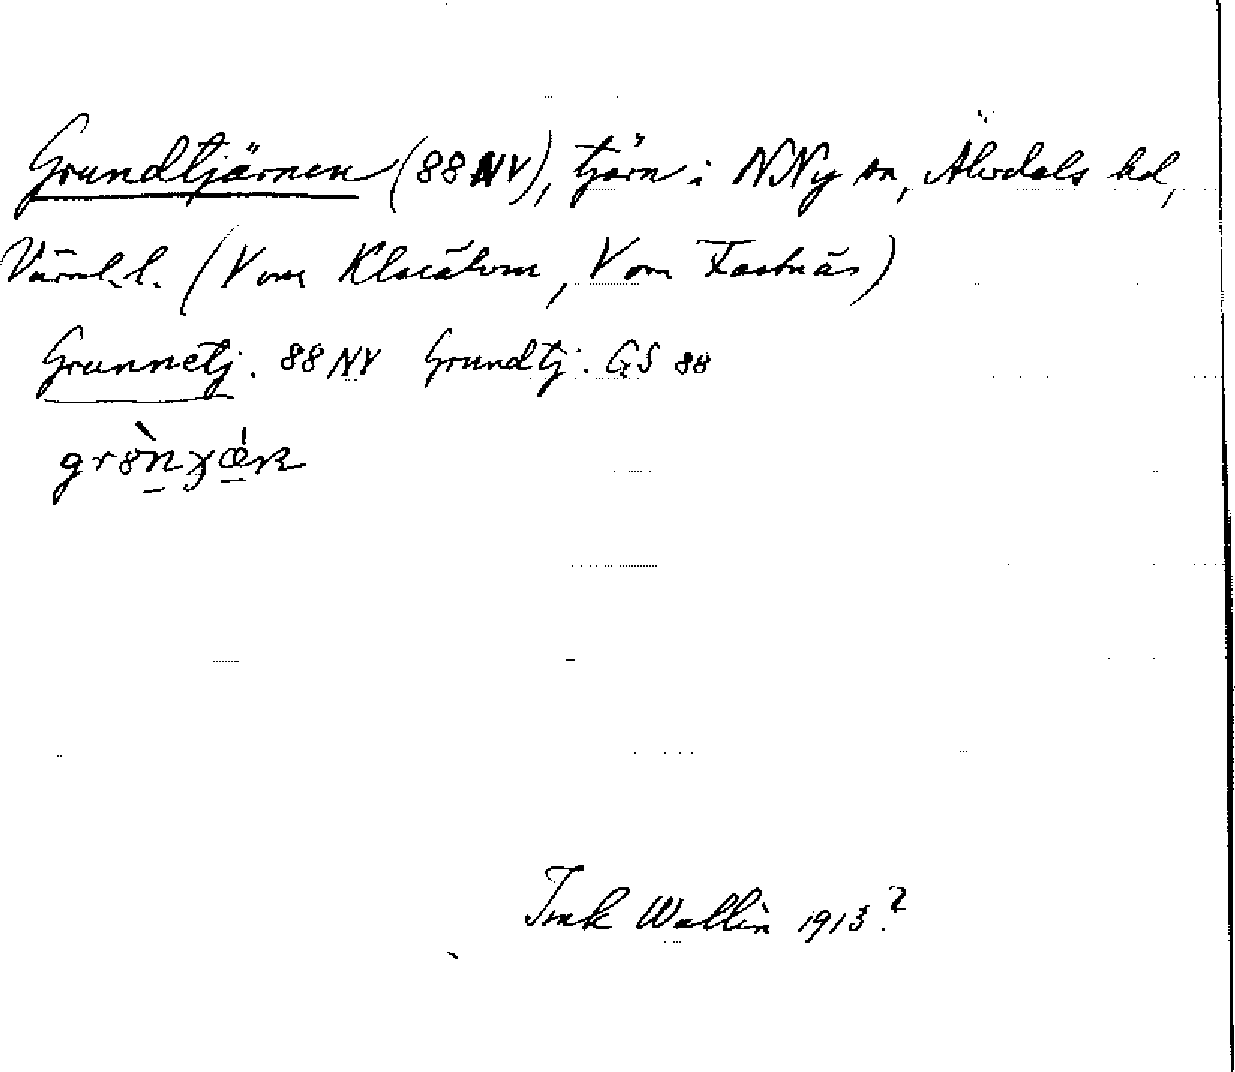 Grundtjärnen (88 NV), tjärn i NNy sn, Älvdals hd,
Värml. l. (V om Klarälven, V om Fastnäs)
Grunnetj. 88 NV Grundtj. GS 88
Torsten Wallin 1913?